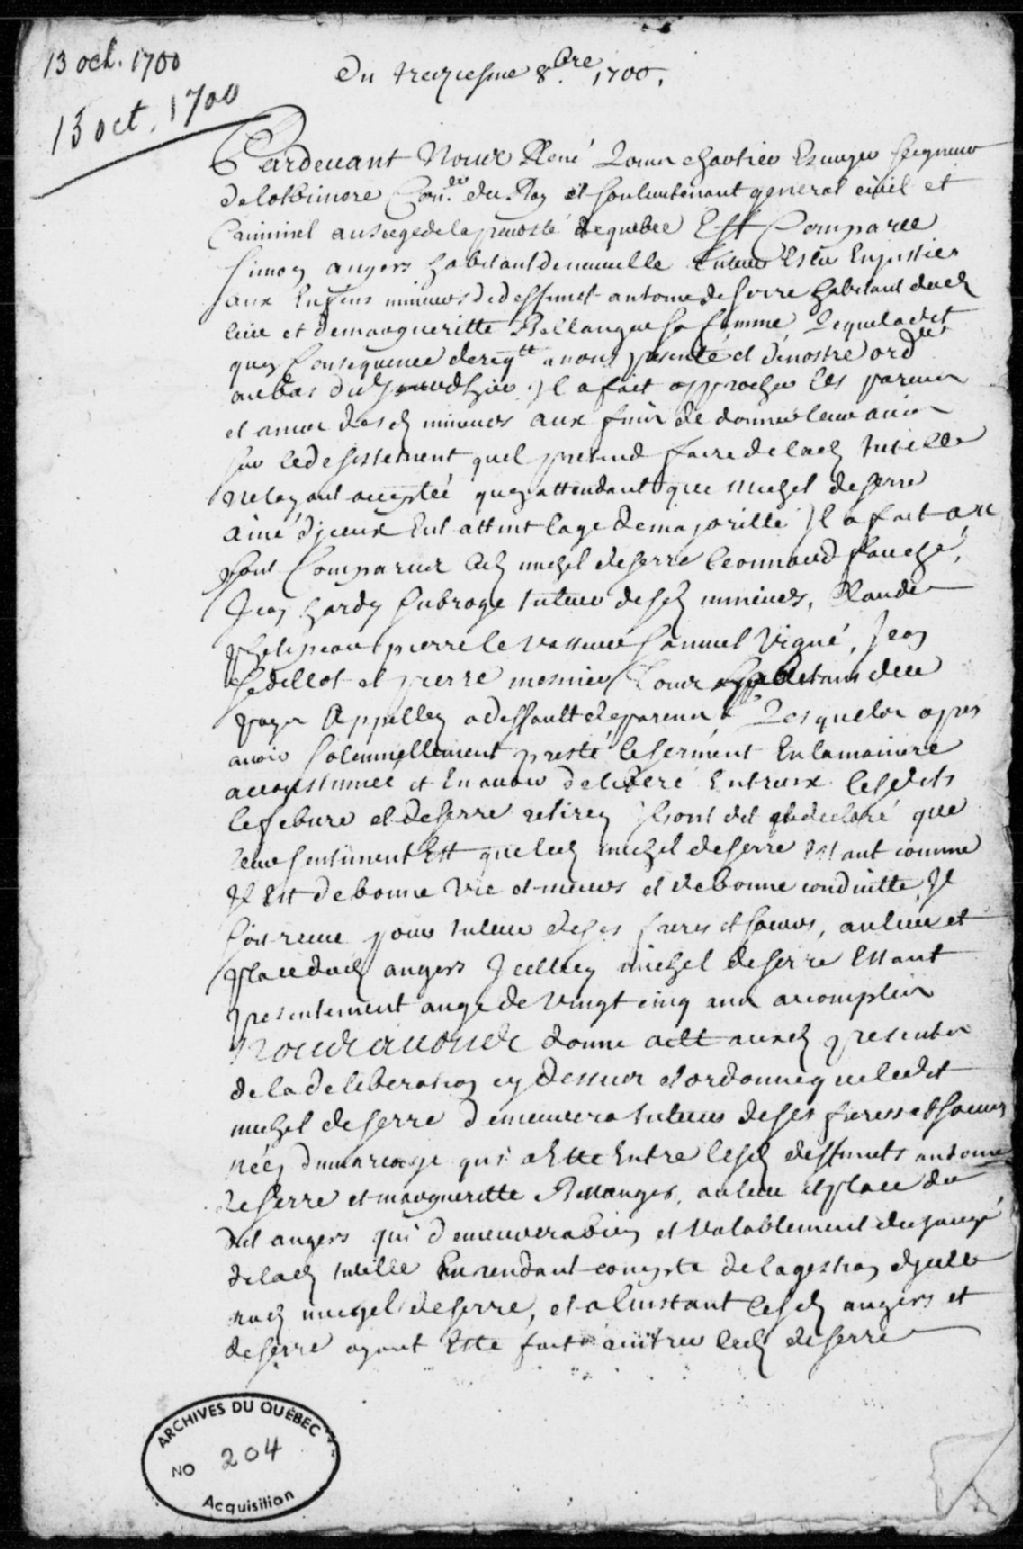 13 oct. 1700
13 oct. 1700
Du treziesme 8.bre 1700.
Pardevant Nous René Louis chartier Escuyer Seigneur
de lotbiniere Con.er du Roy et son lieutenant general civil et
Criminel au siege de la prevosté de quebec Est Comparu
Simon angers habitant de neuville tuteur Esleu En justice
aux Enfens mineurs de deffunct antoine de serre habitant dud
lieu et de margueritte Bellanger sa femme, Lequel a dit
quen Consequence de reqtte a nous presenté et de nostre ord
au bas du jour dhier Il a fait approcher les parens
et amis desd mineurs aux fins de donner leur avis
sur le desistement quil pretend faire de lad tutelle
nelayant acceptée quen attendant que michel de serre
ainé djceux Eut attint lage de majorité Il a fait
pour Comparoir led michel de serre Leonnard fauché,
Jean hardy subrogé tuteur desd mineurs,
pierre le vasseur Samuel Vigné, Jean
Sedillot et pierre mesnier tous habitans dud
Appellez a deffault de parens Lesquels apres
avoir solennellement presté le serment En la maniere
accoustumee et En avoir deliberé Entreux lesdits
lefebure et de serre retirez Ils ont dit et declaré que
leur sentiment Est que led michel de serre Estant comme
Il Est de bonne vie et meurs et de bonne conduitte Il
soit receu pour tuteur de ses freres et soeurs, au lieu et
place dud angers Jcelluy michel de serre Estant
presentement aagé de vingt cinq ans accomplis
Nous avons donné acte ausd presents
de la deliberation cy dessus et ordonné que ledit
michel de serre demeurera tuteur de ses freres et soeurs
néez du mariage qui a Esté Entre lesd deffuncts antoine
de serre et margueritte Bellanger, au lieu et place du
dit angers qui demeurera bien et valablement deschargé
de lad tutelle En rendant compte de la gestion djcelle
aud michel de serre, et a linstant lesd angers et
de serre ayant Esté fait entrer led de serre
ARCHIVES DU QUÉBEC
NO 204
Acquisition